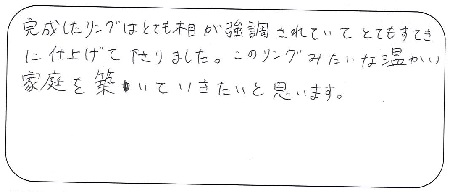 完成したリングはとても木目が強調されていてとてもすてき
に仕上げて下さりました。このリングみたいな温かい
家庭を築いていきたいと思います。